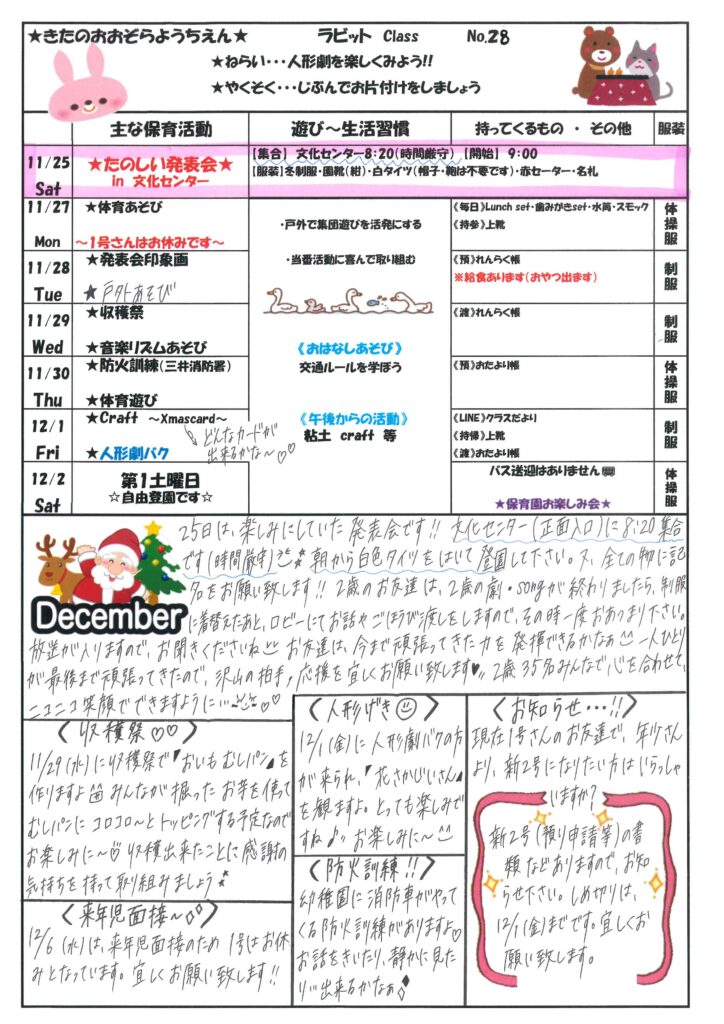 ★きたのおおぞらようちえん★ ラビット Class No.28
★ねらい・・・人形劇を楽しくみよう!!
★やくそく・・・じぶんでお片付けをしましょう
主な保育活動 遊び～生活習慣 持ってくるもの ・ その他 服装
11/25 Sat
★たのしい発表会★
in 文化センター
【集合】 文化センター8:20(時間厳守) 【開始】 9:00
【服装】冬制服・園靴(紺)・白タイツ(帽子・鞄は不要です)・赤セーター・名札
11/27 Mon
★体育あそび
～1号さんはお休みです～
・戸外で集団遊びを活発にする
《毎日》Lunch set・歯みがきset・水筒・スモック
《持参》上靴
体操服
11/28 Tue
★発表会印象画
★戸外あそび
・当番活動に喜んで取り組む
《預》れんらく帳
※給食あります(おやつ出ます)
制服
11/29 Wed
★収穫祭
★音楽リズムあそび
《おはなしあそび》
《渡》れんらく帳
制服
11/30 Thu
★防火訓練(三井消防署)
★体育遊び
交通ルールを学ぼう
《預》おたより帳
体操服
12/1 Fri
★Craft ～Xmascard～
どんなカードが
出来るかな～♡♡
★人形劇バク
《午後からの活動》
粘土 craft 等
《LINE》クラスだより
《持帰》上靴
《渡》おたより帳
制服
12/2 Sat
第1土曜日
☆自由登園です☆
バス送迎はありません
★保育園お楽しみ会★
体操服
December
25日は、楽しみにしていた発表会です!! 文化センター(正面入口)に8:20集合
です(時間厳守) 朝から白色タイツをはいて登園して下さい。又、全ての物に記
名をお願い致します!! 2歳のお友達は、2歳の劇・songが終わりましたら、制服
に着替えたあと、ロビーにてお話やごほうび渡しをしますので、その時一度お集まり下さい。
放送が入りますので、お聞きくださいね お友達は、今まで頑張ってきた力を発揮できるかなぁ 一人ひとり
が最後まで頑張ってきたので、沢山の拍手、応援を宜しくお願い致します♥ 2歳35名みんなで心を合わせて、
ニコニコ笑顔でできますように…♡♡
〈収穫祭♡♡〉
11/29(水)に収穫祭で「おいもむしパン」を
作りますよ みんなが掘ったお芋を使って
むしパンにコロコロ～とトッピングする予定なので
お楽しみに～♡ 収穫出来たことに感謝の
気持ちを持って取り組みましょう
〈来年児面接～〉
12/6(水)は、来年児面接のため 1号はお休
みとなっています。宜しくお願い致します!!
〈人形げき〉
12/1(金)に人形劇バクの方
が来られ、「花さかじいさん」
を観ますよ。とっても楽しみで
すね♪ お楽しみに～
〈防火訓練!!〉
幼稚園に消防車がやって
くる防火訓練がありますよ♡
お話をきいたり、静かに見た
り… 出来るかなぁ
〈お知らせ…!!〉
現在1号さんのお友達で、年少さん
より、新2号になりたい方はいらっしゃ
いますか?
新2号(預り申請等)の書
類などありますので、お知
らせ下さい。しめ切りは、
12/1(金)までです。宜しくお
願い致します。